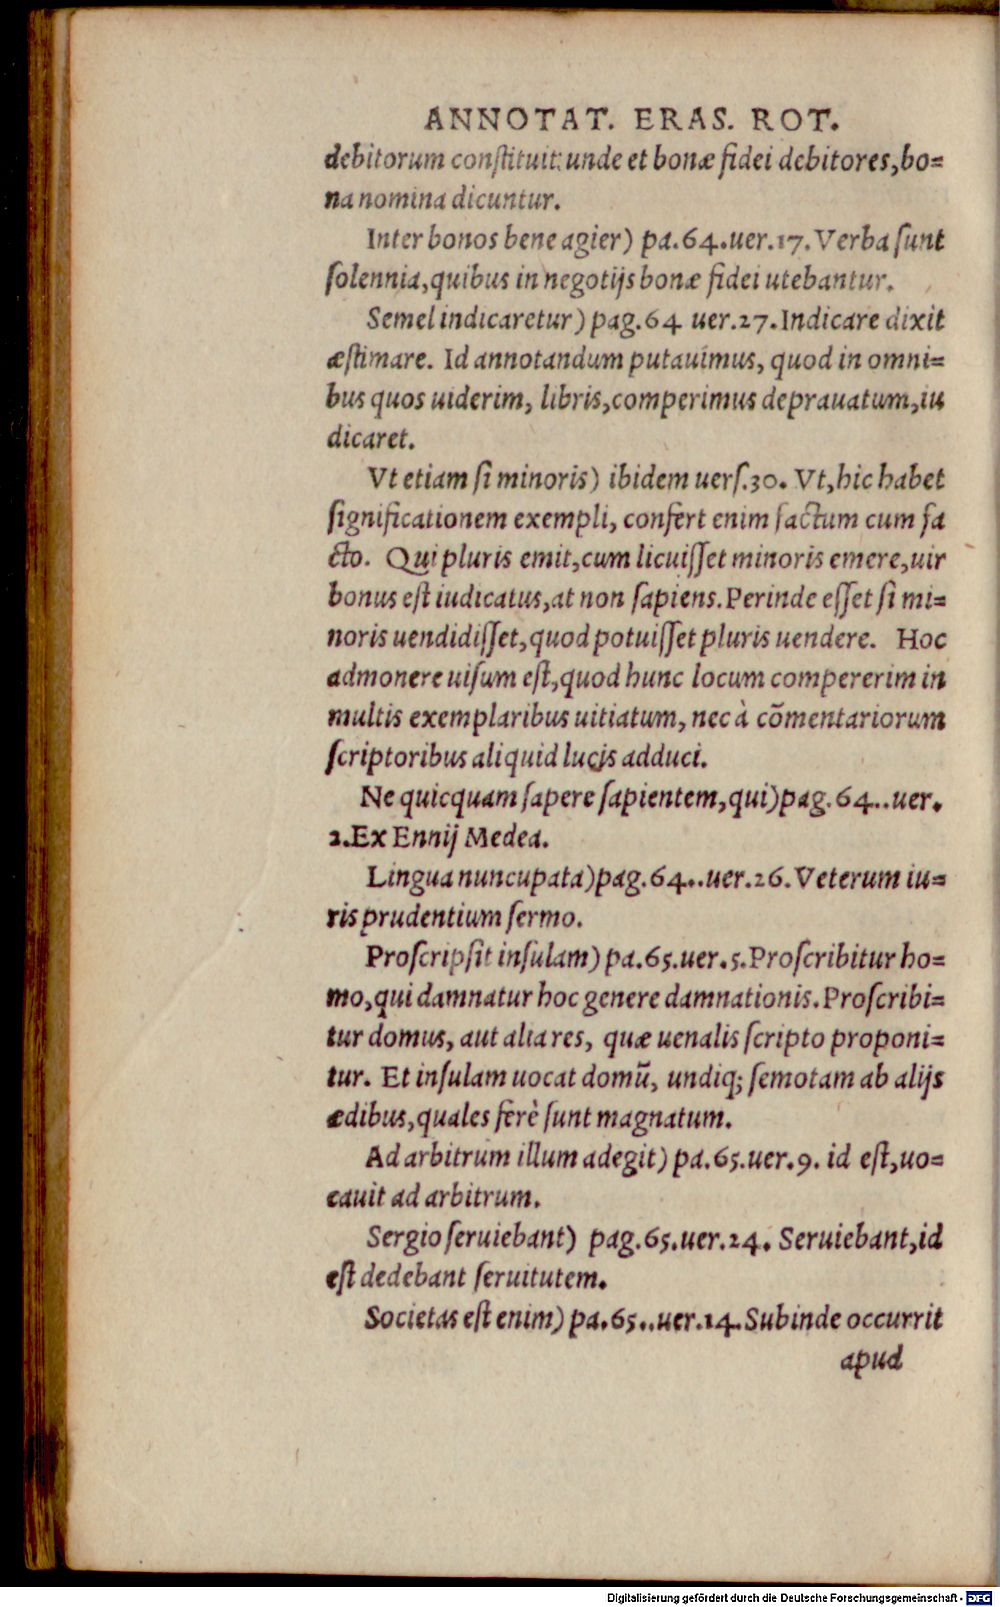 ANNOTAT. ERAS. ROT.
debitorum conſtituit: unde et bonæ fidei debitores, bo=
na nomina dicuntur.
Inter bonos bene agier) pa.64.uer.17. Verba ſunt
ſolennia, quibus in negotijs bonæ fidei utebantur.
Semel indicaretur) pag.64 uer.27. Indicare dixit
æſtimare. Id annotandum putauimus, quod in omni=
bus quos uiderim, libris, comperimus deprauatum, iu
dicaret.
Vt etiam ſi minoris) ibidem uerſ.30. Vt, hic habet
ſignificationem exempli, confert enim factum cum fa
cto. Qui pluris emit, cum licuiſſet minoris emere, uir
bonus eſt iudicatus, at non ſapiens. Perinde eſſet ſi mi=
noris uendidiſſet, quod potuiſſet pluris uendere. Hoc
admonere uiſum eſt, quod hunc locum compererim in
multis exemplaribus uitiatum, nec à cõmentariorum
ſcriptoribus aliquid lucis adduci.
Ne quicquam ſapere ſapientem, qui) pag.64..uer.
2. Ex Ennij Medea.
Lingua nuncupata) pag.64..uer.26. Veterum iu=
ris prudentium ſermo.
Proſcripſit inſulam) pa.65.uer.5. Proſcribitur ho=
mo, qui damnatur hoc genere damnationis. Proſcribi=
tur domus, aut alia res, quæ uenalis ſcripto proponi=
tur. Et inſulam uocat domũ, undiq; ſemotam ab alijs
ædibus, quales ferè ſunt magnatum.
Ad arbitrum illum adegit) pa.65.uer.9. id eſt, uo=
cauit ad arbitrum.
Sergio ſeruiebant) pag.65.uer.24. Seruiebant, id
eſt dedebant ſeruitutem.
Societas eſt enim) pa.65..uer.14. Subinde occurrit
apud
Digitalisierung gefördert durch die Deutsche Forschungsgemeinschaft - DFG